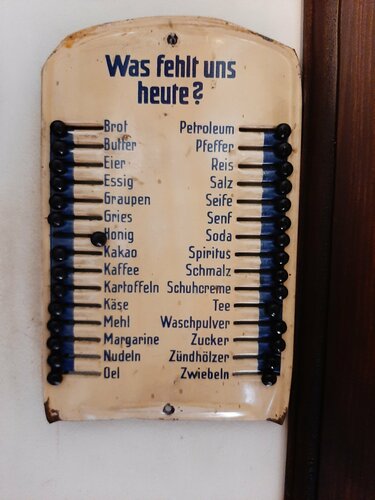 Was fehlt uns
heute?
Brot Petroleum
Butter Pfeffer
Eier Reis
Essig Salz
Graupen Seife
Gries Senf
Honig Soda
Kakao Spiritus
Kaffee Schmalz
Kartoffeln Schuhcreme
Käse Tee
Mehl Waschpulver
Margarine Zucker
Nudeln Zündhölzer
Oel Zwiebeln